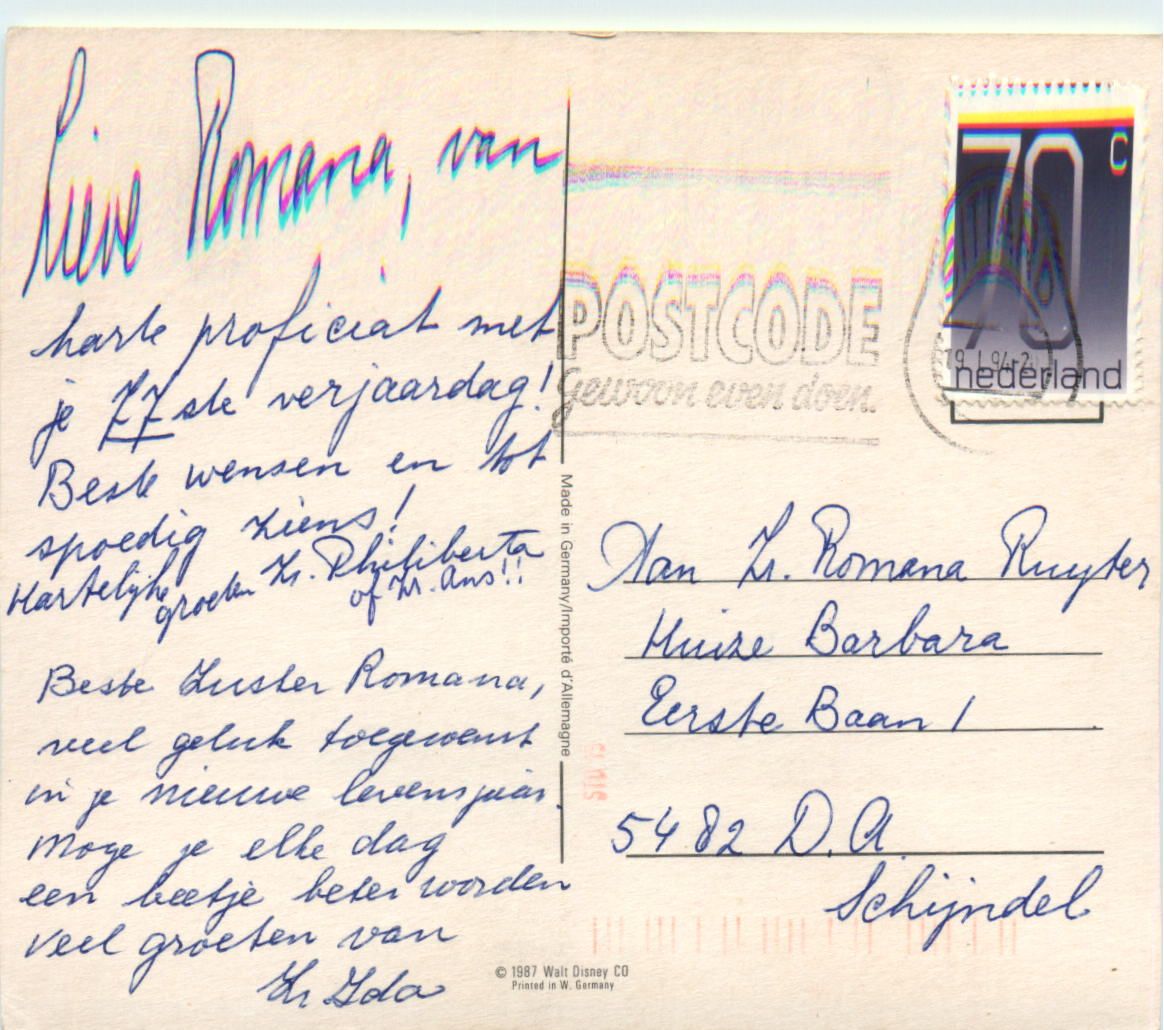 Lieve Romana, van
harte proficiat met
je 77ste verjaardag!
Beste wensen en tot
spoedig ziens!
Hartelijke
groeten Zr. Philiberta
of Zr. Ans!!
Beste Zuster Romana,
veel geluk toegewenst
in je nieuwe levensjaar.
Moge je elke dag
een beetje beter worden
veel groeten van
Zr Ida
POSTCODE
Gewoon even doen.
70 c
nederland
Made in Germany/Importé d'Allemagne
Aan Zr. Romana Ruyter
Huize Barbara
Eerste Baan 1
5482 D.A.
Schijndel
© 1987 Walt Disney CO
Printed in W. Germany